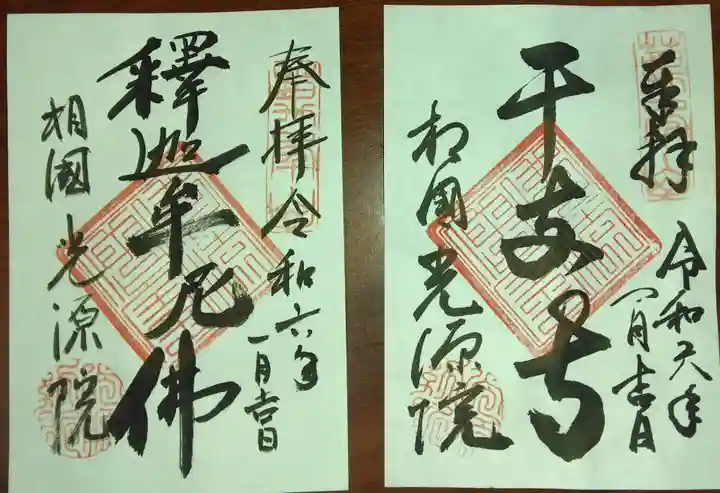 奉拝
令和六年
一月吉日
干支寺
相國光源院
奉拝令和六年
一月吉日
釋迦牟尼佛
相國光源院